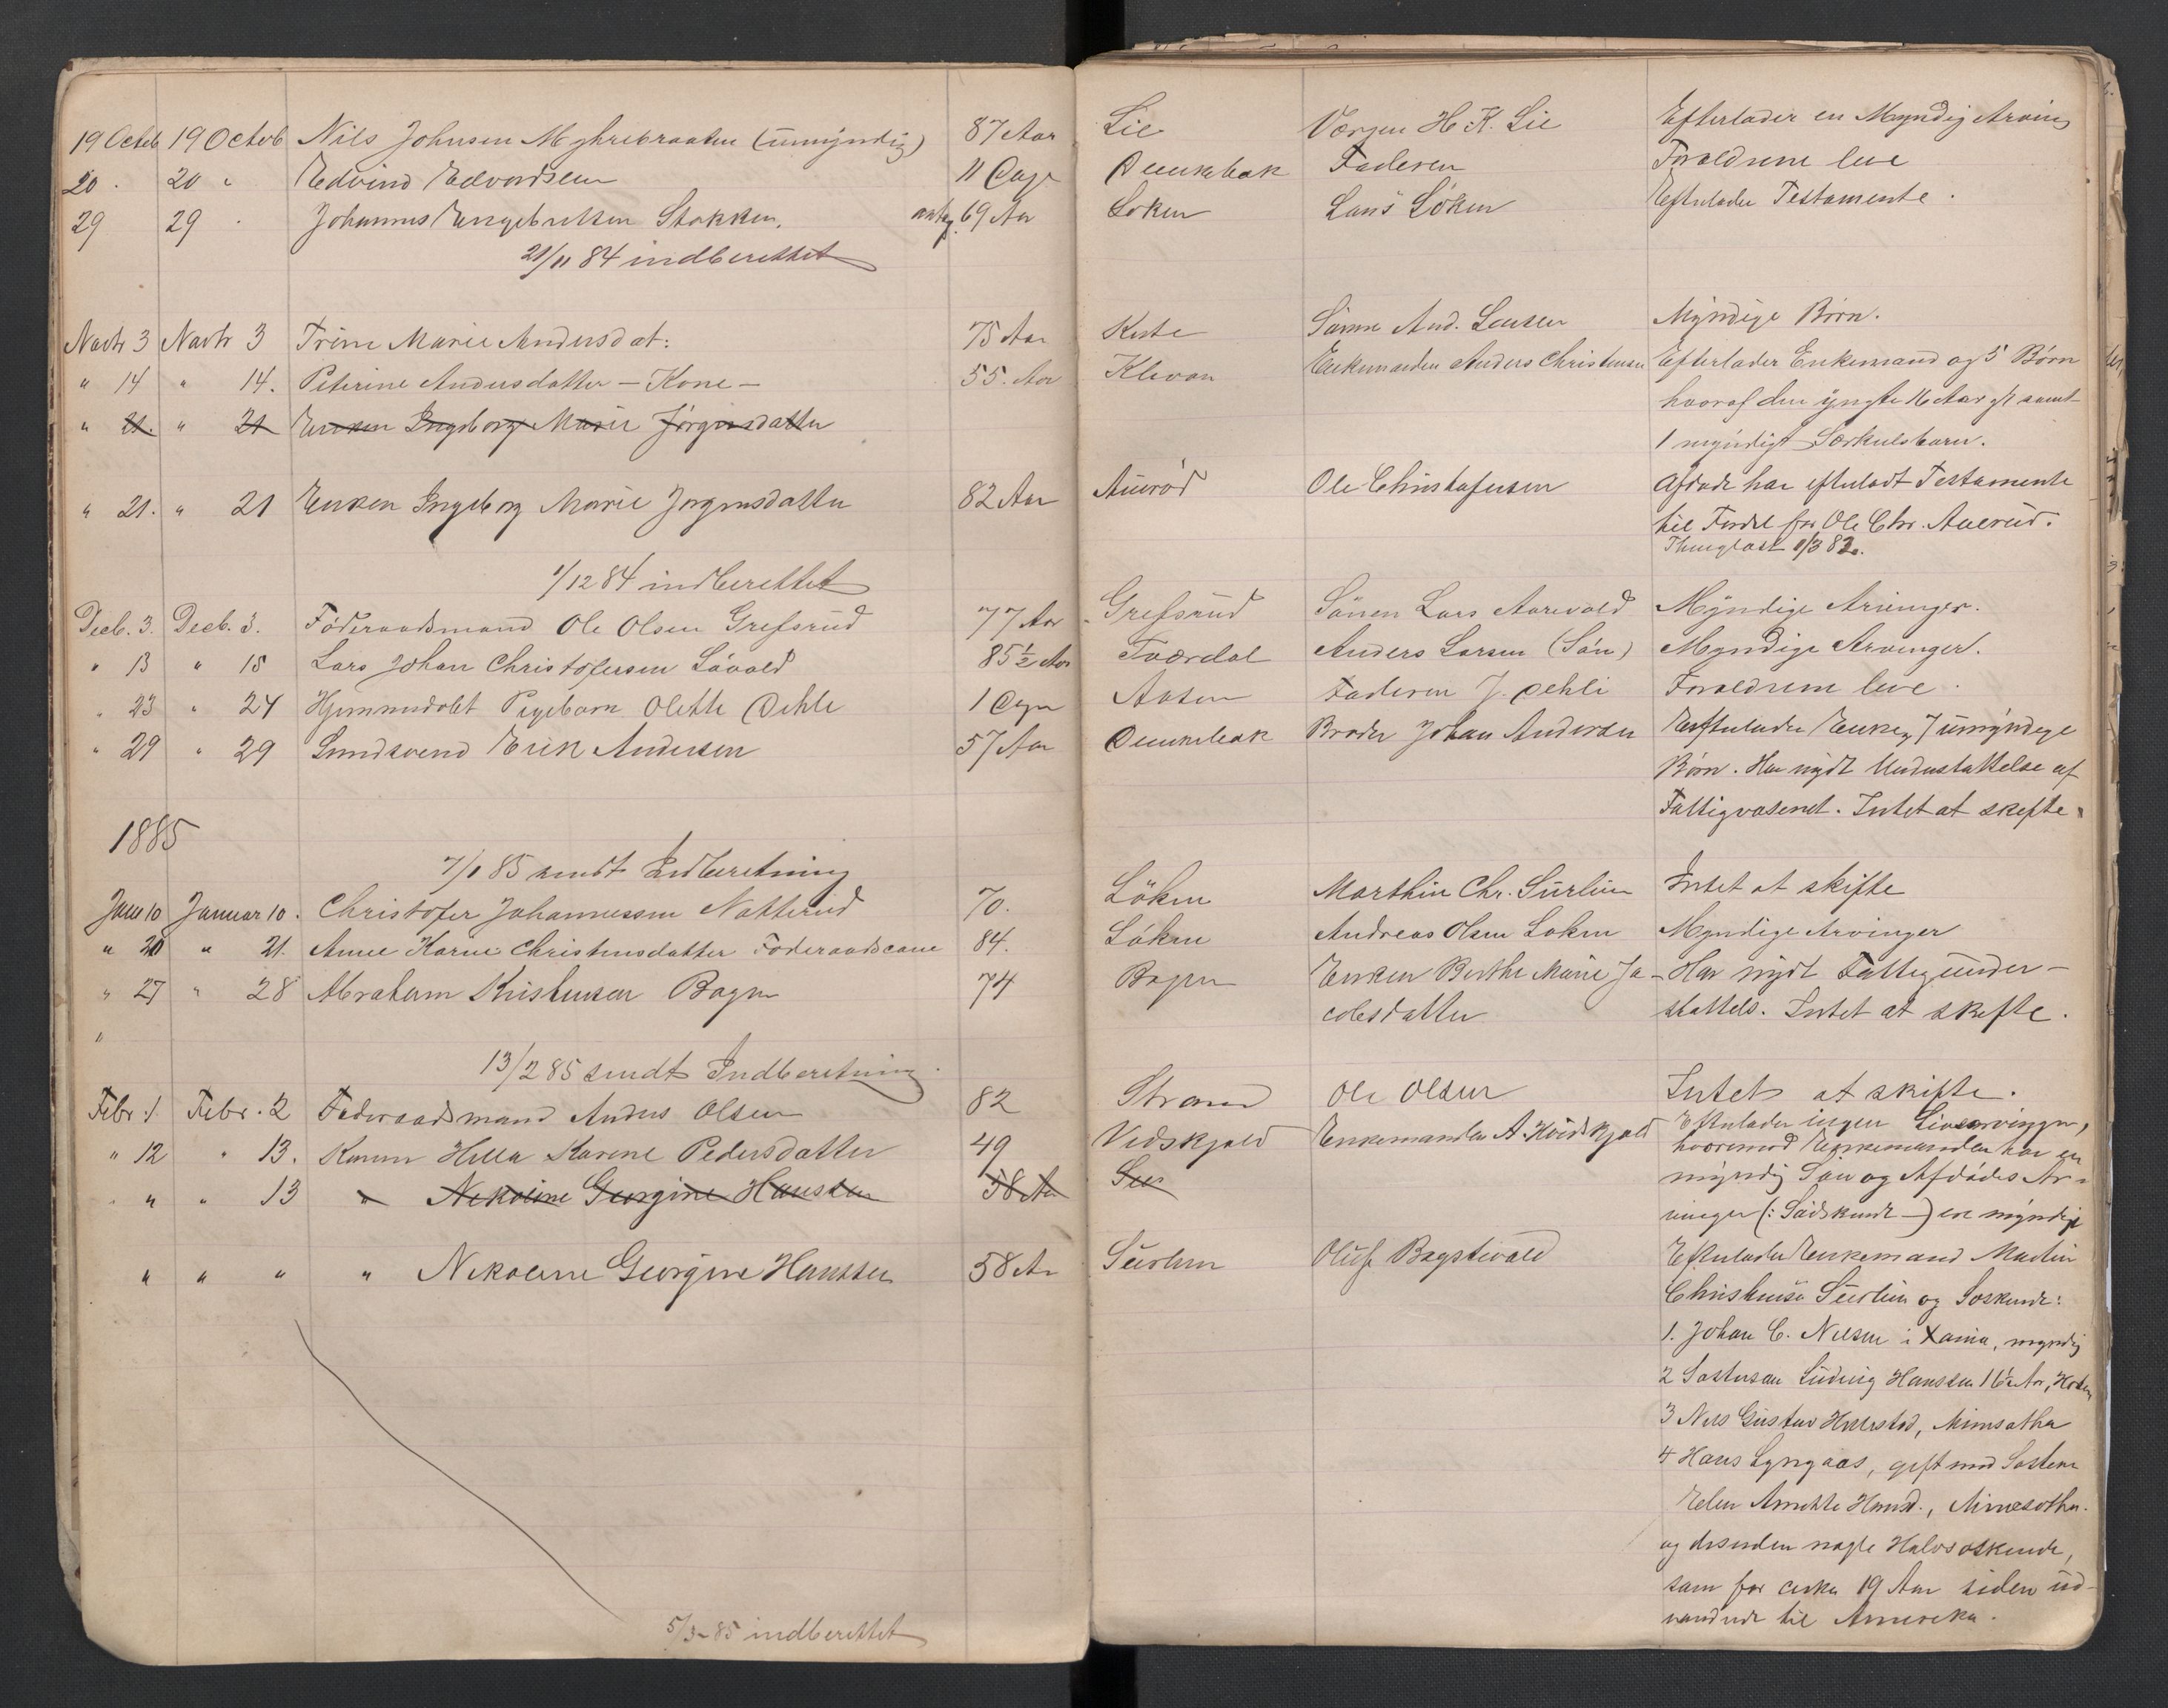 19 Octob 19 Octob Nils Johnsen Myhrebraaten (umyndig) 87 Aar Lie Vergen H. K. Lie Efterlader en Myndig Arving
20 . 20 " Edvind Edvardsen 11 Dage Faderen Forældrene leve
29 29 . Johannes Engebretsen Stokken. antag. 69 Aar Løken Lars Løken Efterlader Testamente .
21/11 84 indberettet
Novbr 3 Novbr 3 Trine Marie Andersdat: 75 Aar Sønne And. Myndige Børn.
" 14 " 14. Peterine Andersdatter - Kone - 55. Aar Enkemanden Anders Christensen Efterlader Enkemand og 5 Børn
hvoraf den yngste 16 Aar gl samt
" 21. " 21 Enken Ingeborg Marie Jørgensdatter 1 myndigt Særkulsbarn.
" 21. " 21 Enken Ingeborg Marie Jørgensdatter 82 Aar Auerød Ole Christofersen Afdøde har efterladt Testamente
til Fordel for Ole Chr. Auerud.
Thinglæst 1/3 82.
1/12 84 indberettet
Decb. 3. Decb. 3. Föderaadsmand Ole Olsen Grefsrud 77 Aar Grefsrud Sönen Lars Aarevold Myndige Arvinger.
" 13 " 15 Lars Johan Christofersen Lövold 85 1/2 Aar Tværdal Anders Larsen (Sön) Myndige Arvinger.
" 23 " 24 Hjemmedøbt Pigebarn Olette Oehli 1 Dag Aasen Faderen J. Oehli Forældrene leve .
" 29 " 29 Erik Andersen 57 Aar Broder Johan Andersen Efterlader Enke, 7 umyndige
Børn. Har nydt Understøttelse af
Fattigvæsenet. Intet at skifte.
1885
7/1 85 sendt Indberetning
Janr 10 Januar 10. Christofer Johannessen Natterud 70. Löken Marthin Chr. Surlien Intet at skifte
" 20 " 21. Anne Karine Christensdatter Föderaadscone 84. Löken Andreas Olsen Loken Myndige Arvinger
" 27 " 28 Abraham Kristensen Bøgen 74 Bøgen Enken Berthe Marie Ja- Har nydt Fattigunder-
cobsdatter støttels. Intet at skifte.
"
13/2 85 sendt Indberetning.
Febr. 1. Febr. 2 Föderaadsmand Anders Olsen 82 Strand Ole Olsen Intet at skifte.
" 12 " 13. Konen Karene Pedersdatter 49 Vidskjold Enkemanden A. Hvidskjold Efterlader ingen Livsarvinger,
hvorimod Enkemanden har en
" " 13 " Nekoline Georgine Hanssen 58 Aar Sur myndig Søn og Afdödes Ar-
vinger (: Södskende -) ere myndige
" " " " Nekoline Georgine Hanssen 58 Aar Surlien Oluf Bøgstivold Efterlader Enkemand Martin
Christensen Surlien og Søskende:
1. Johan C. Nilsen i Xania, myndig
2 Søstersøn Ludvig Hanssen 16 1/2 Aar,
3 Nils Gustav Minisotha
4 Hans Lyngaas, gift med Søsteren
Elen Annette Hansd., Minesotha.
og desuden nogle Halvsøskende,
som for cirka 19 Aar siden ud-
vandrede til Amerika.
5/3-85 indberettet